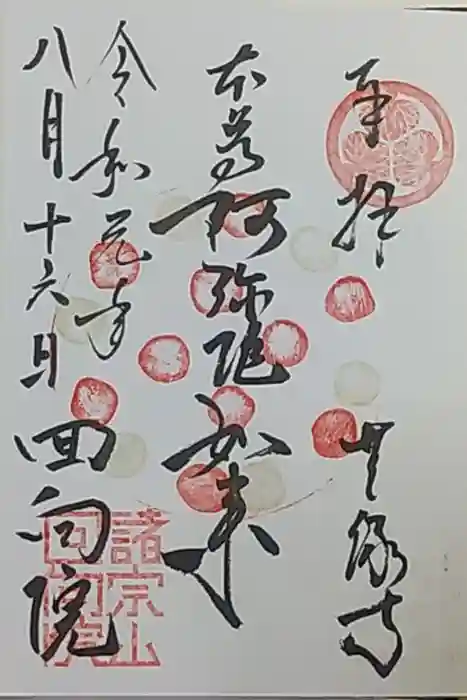 奉拝
无縁寺
本尊阿弥陀如来
令和元年
八月十六日
回向院
諸宗山
回向院